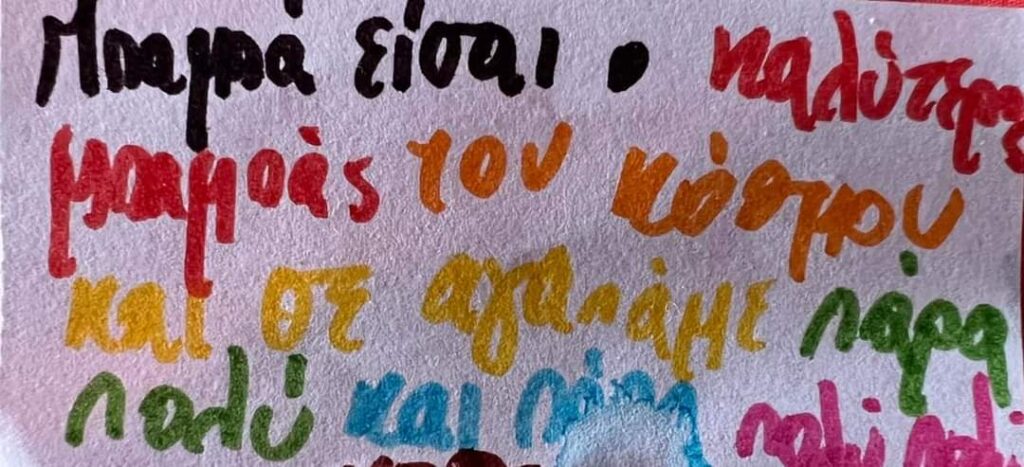 Μπαμπά είσαι ο καλύτερος
μπαμπάς του κόσμου
και σε αγαπάμε πάρα
πολύ και πάρα πολύ πολύ